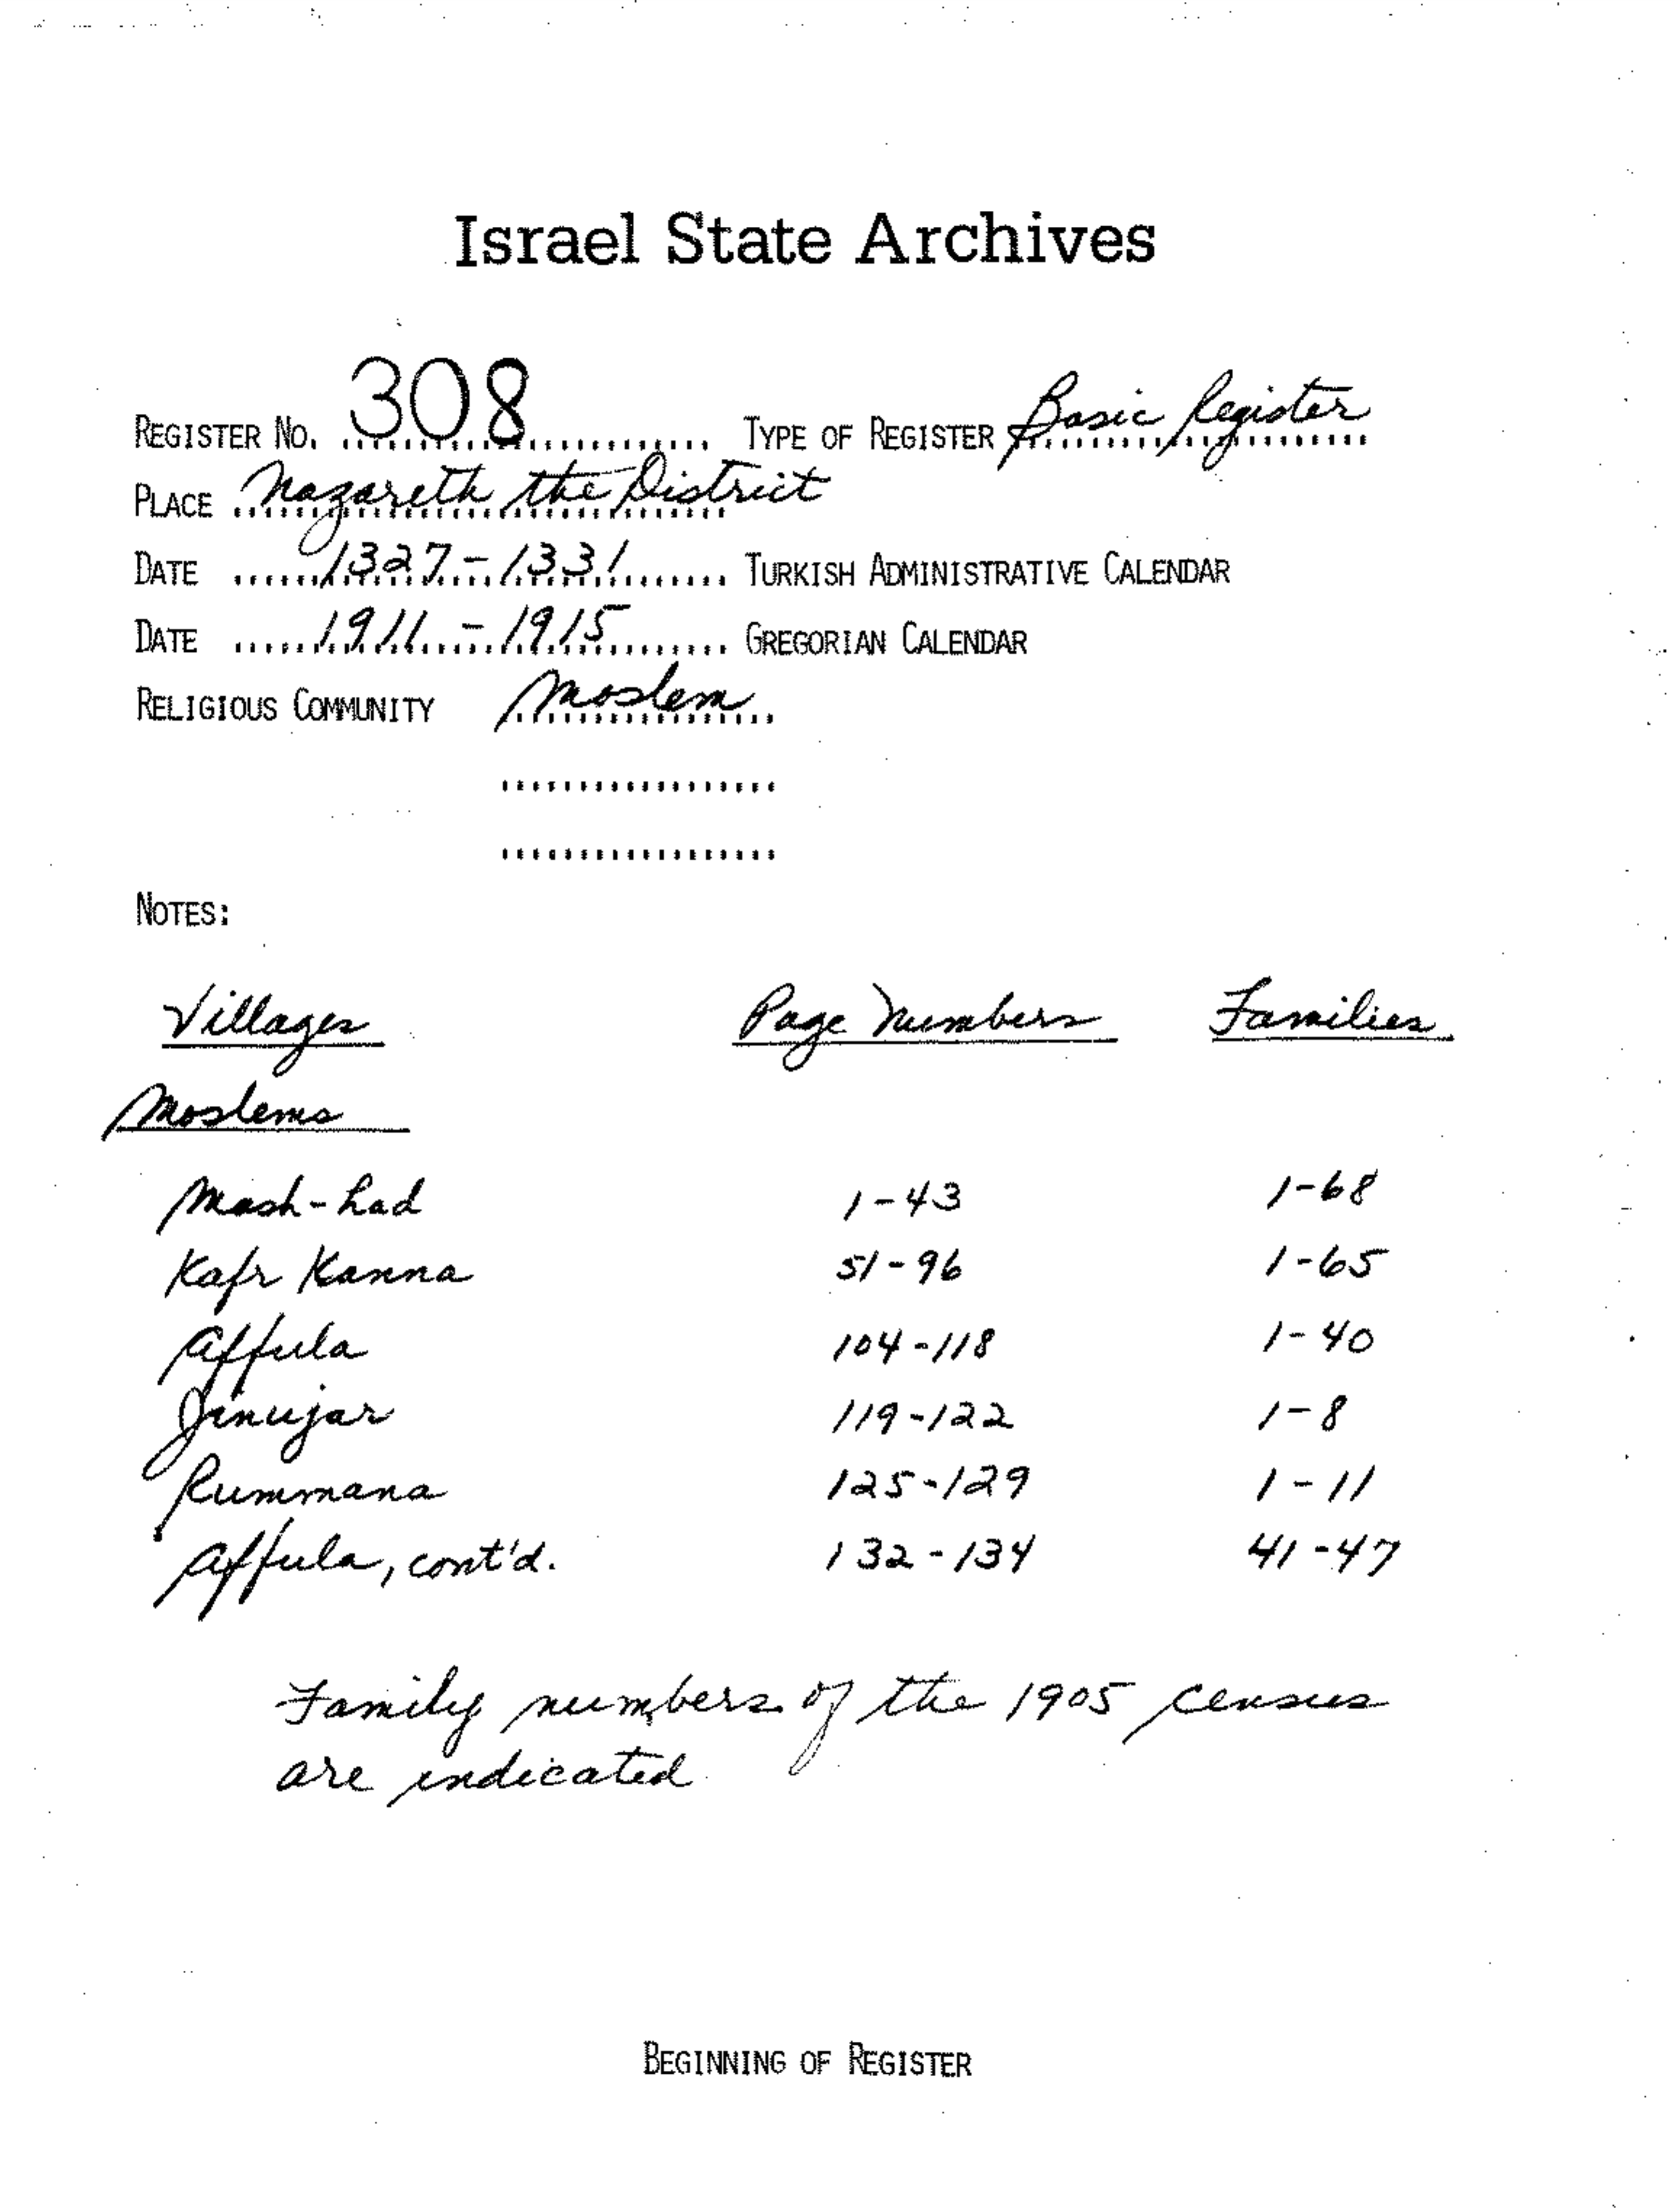 Israel State Archives
REGISTER NO. 308 TYPE OF REGISTER Basic Register
PLACE Nazareth the District
DATE 1327-1331 TURKISH ADMINISTRATIVE CALENDAR
DATE 1911-1915 GREGORIAN CALENDAR
RELIGIOUS COMMUNITY Moslem
NOTES:
Villages Page Numbers Families
Moslems
Mash-had 1-43 1-68
Kafr Kanna 51-96 1-65
Affula 104-118 1-40
Jinujar 119-122 1-8
Rummana 125-129 1-11
Affula, cont'd. 132-134 41-47
Family numbers of the 1905 census
are indicated
BEGINNING OF REGISTER